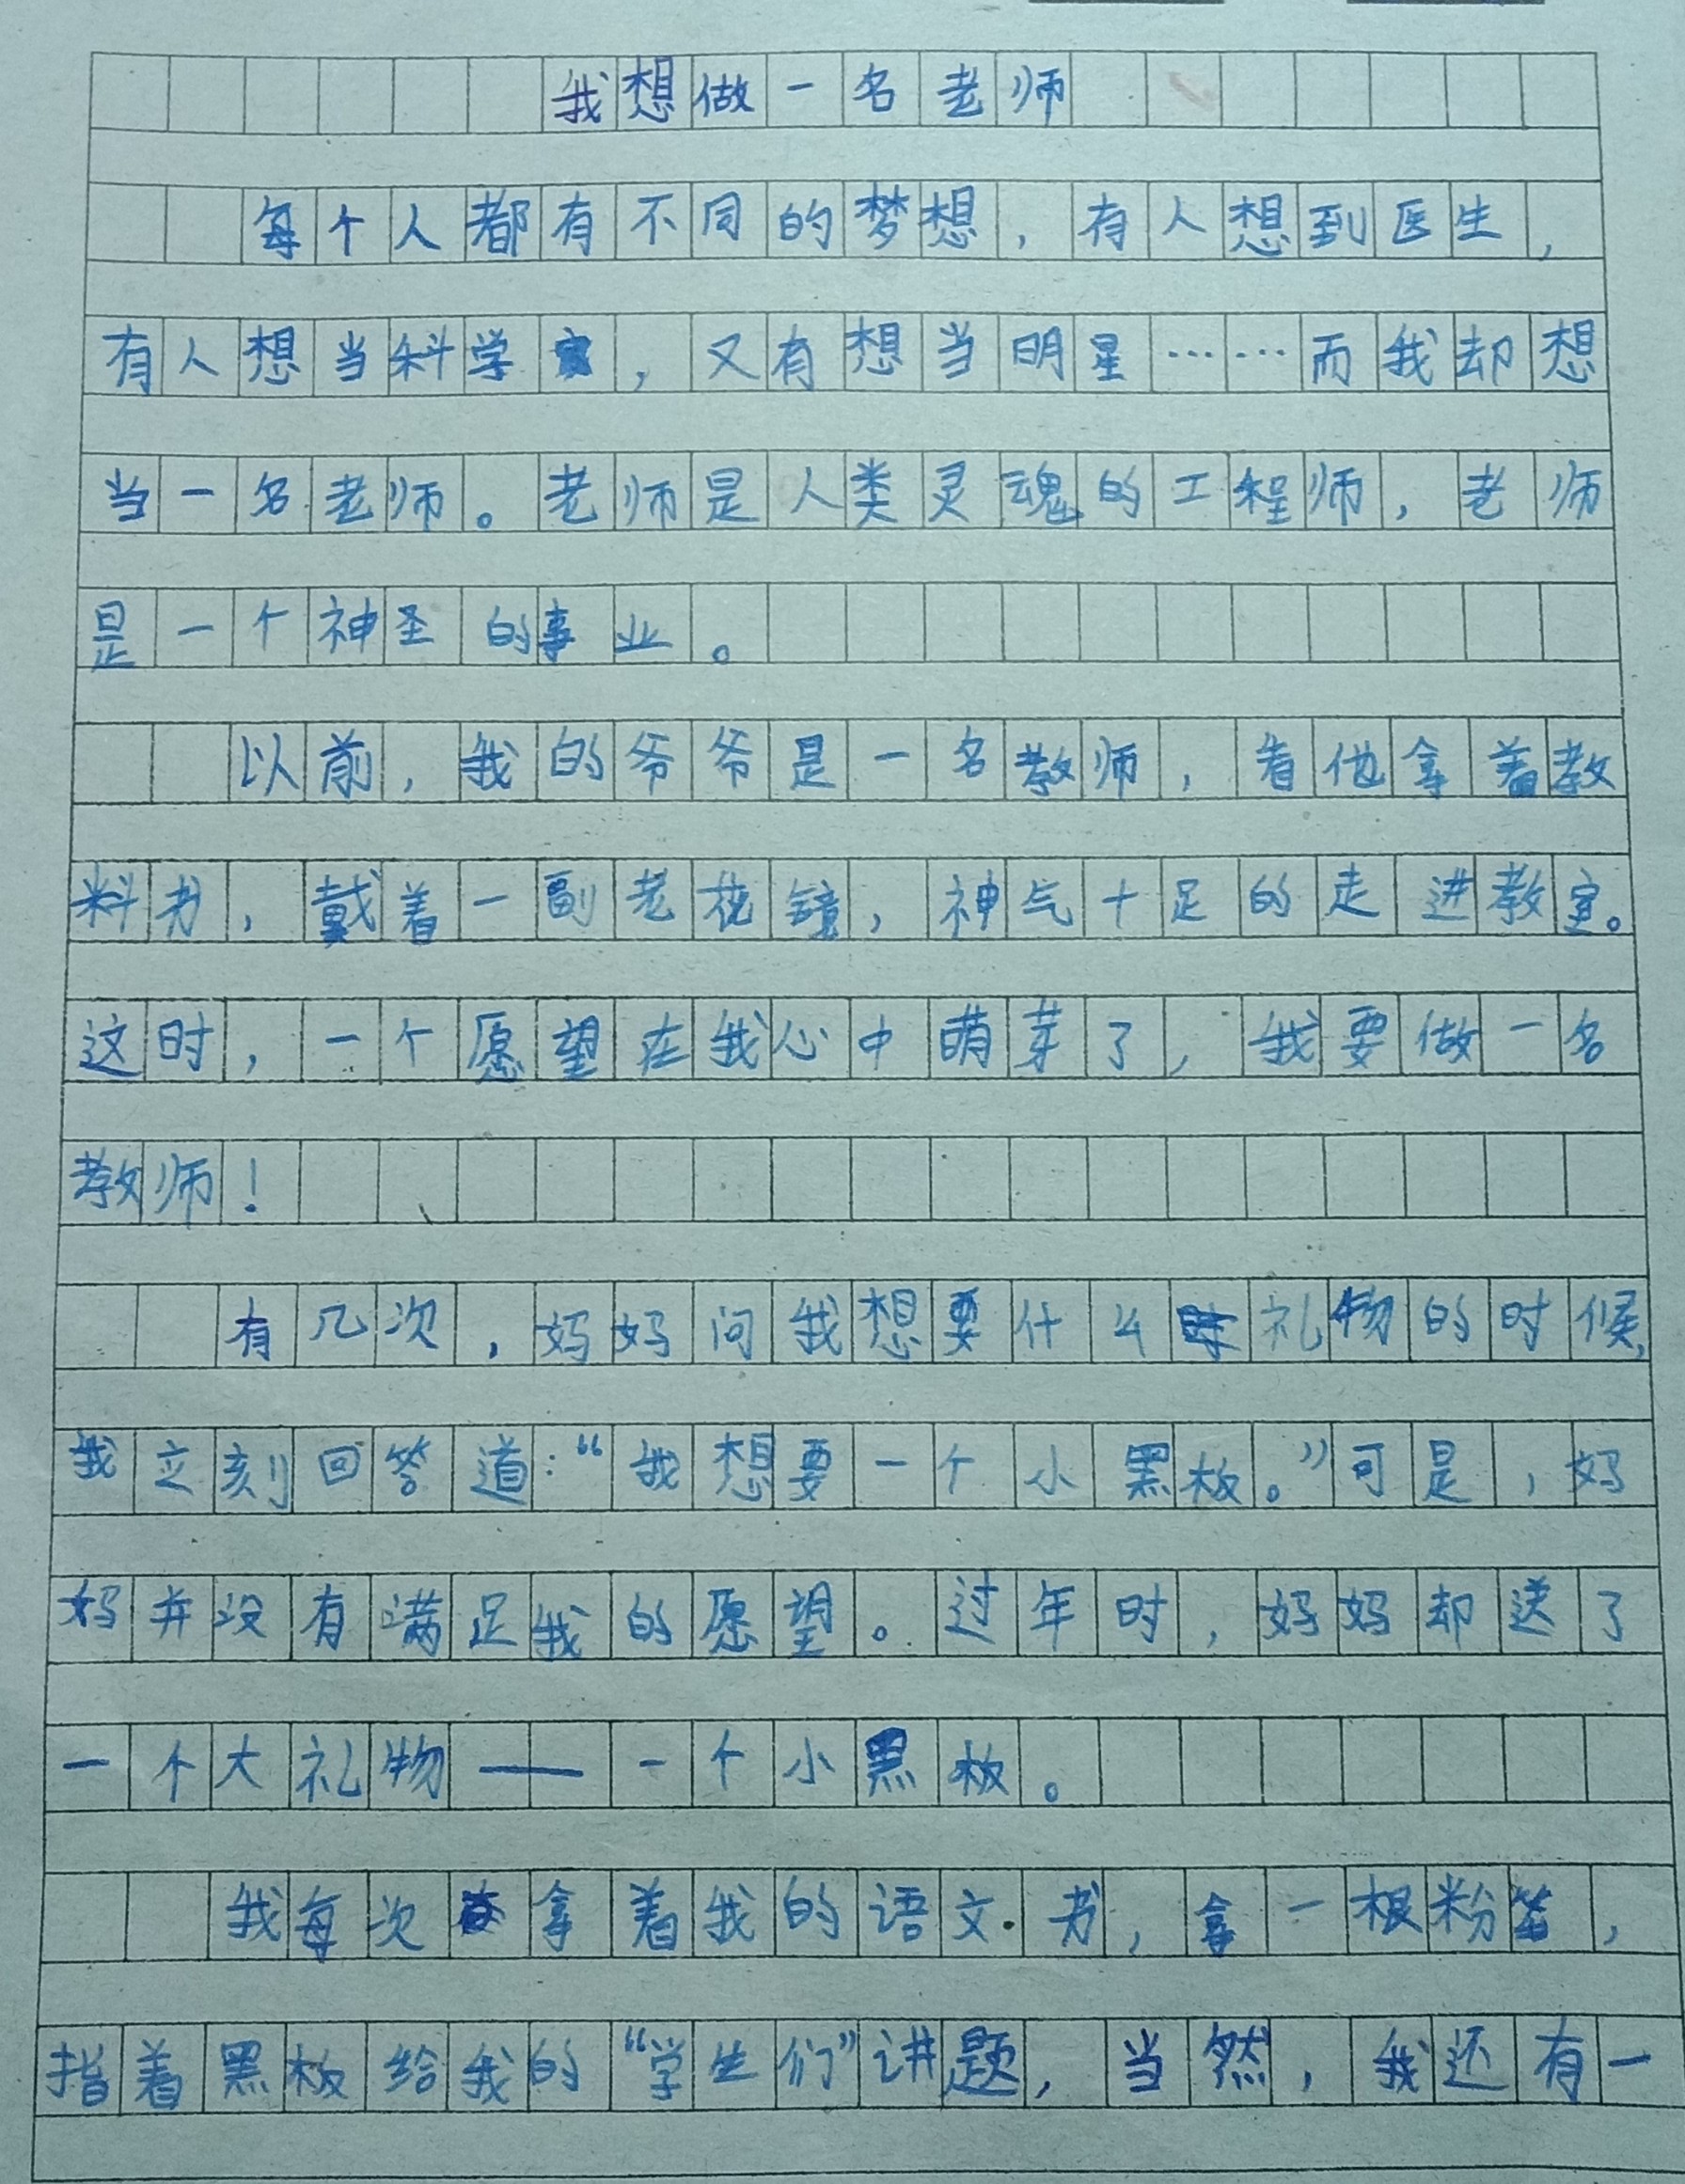 我想做一名老师
每个人都有不同的梦想，有人想到医生，
有人想当科学家，又有想当明星……而我却想
当一名老师。老师是人类灵魂的工程师，老师
是一个神圣的事业。
以前，我的爷爷是一名教师，看他拿着教
料书，戴着一副老花镜，神气十足的走进教室。
这时，一个愿望在我心中萌芽了，我要做一名
教师！
有几次，妈妈问我想要什么礼物的时候，
我立刻回答道：“我想要一个小黑板。”可是，妈
妈并没有满足我的愿望。过年时，妈妈却送了
一个大礼物——一个小黑板。
我每次拿着我的语文书，拿一根粉笔，
指着黑板给我的“学生们”讲题，当然，我还有一